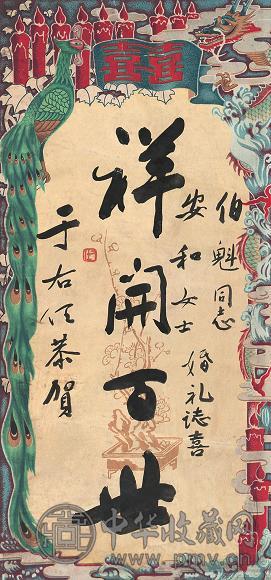 囍
伯魁同志
安和女士 婚礼志喜
祥開百世
于右任恭賀
中华收藏网
www.pmv.cn